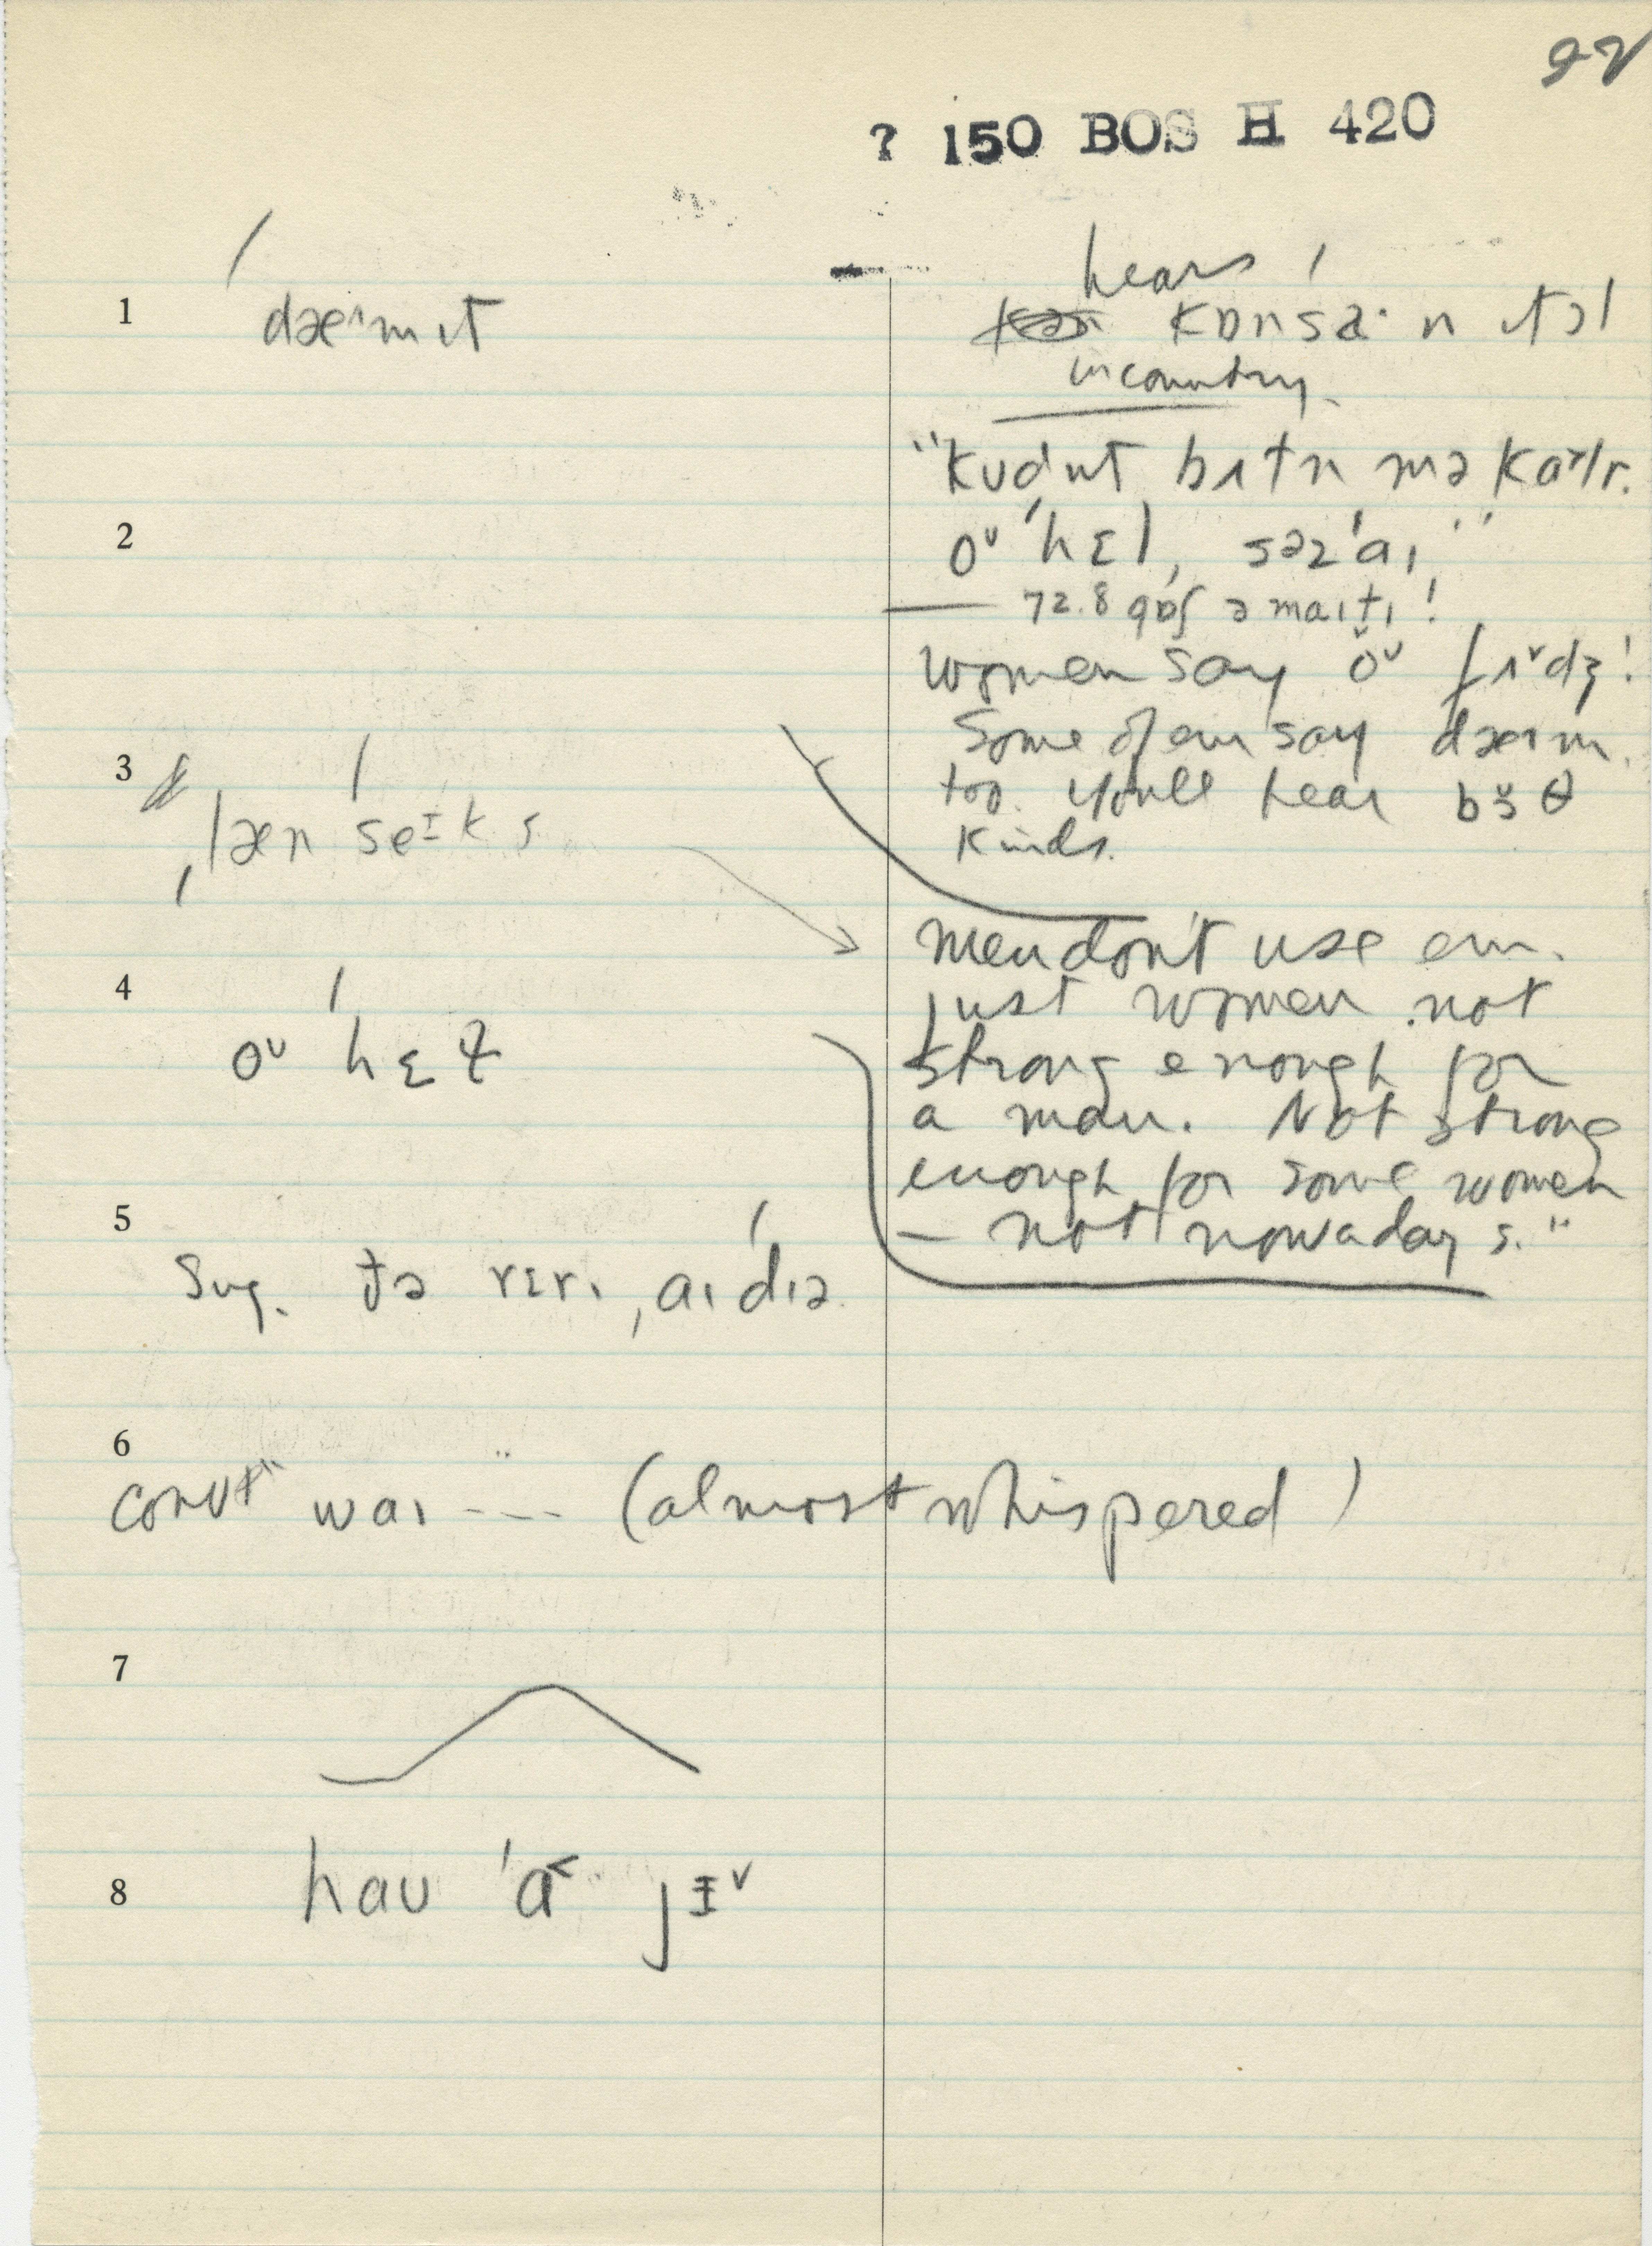 92
? 150 BOS H 420
1
dæᶦmɪt
hears
kɒnsa·nɪtɔl
in country
"kʊdn̩t bɪtn mə kɒlr.
2
oᵘ 'hɛl, səz 'aɪ"
— 72.8 gɒʃ əmaɪtɪ!
women say oᵘ fɪᵛdʒ!
Some of em say dæɪm
3
too. You'll hear boθ
læn seɪks
kinds.
men don't use em.
4
just women not
oᵘ hɛɫ
strong enough for
a man. Not strong
enough for some women
5
— not nowadays."
Sug. ðə rɛrɪ, aɪdɪə
6
conv" waɪ --- (almost whispered)
7
8
haʊ 'a˂· jɪᵛ